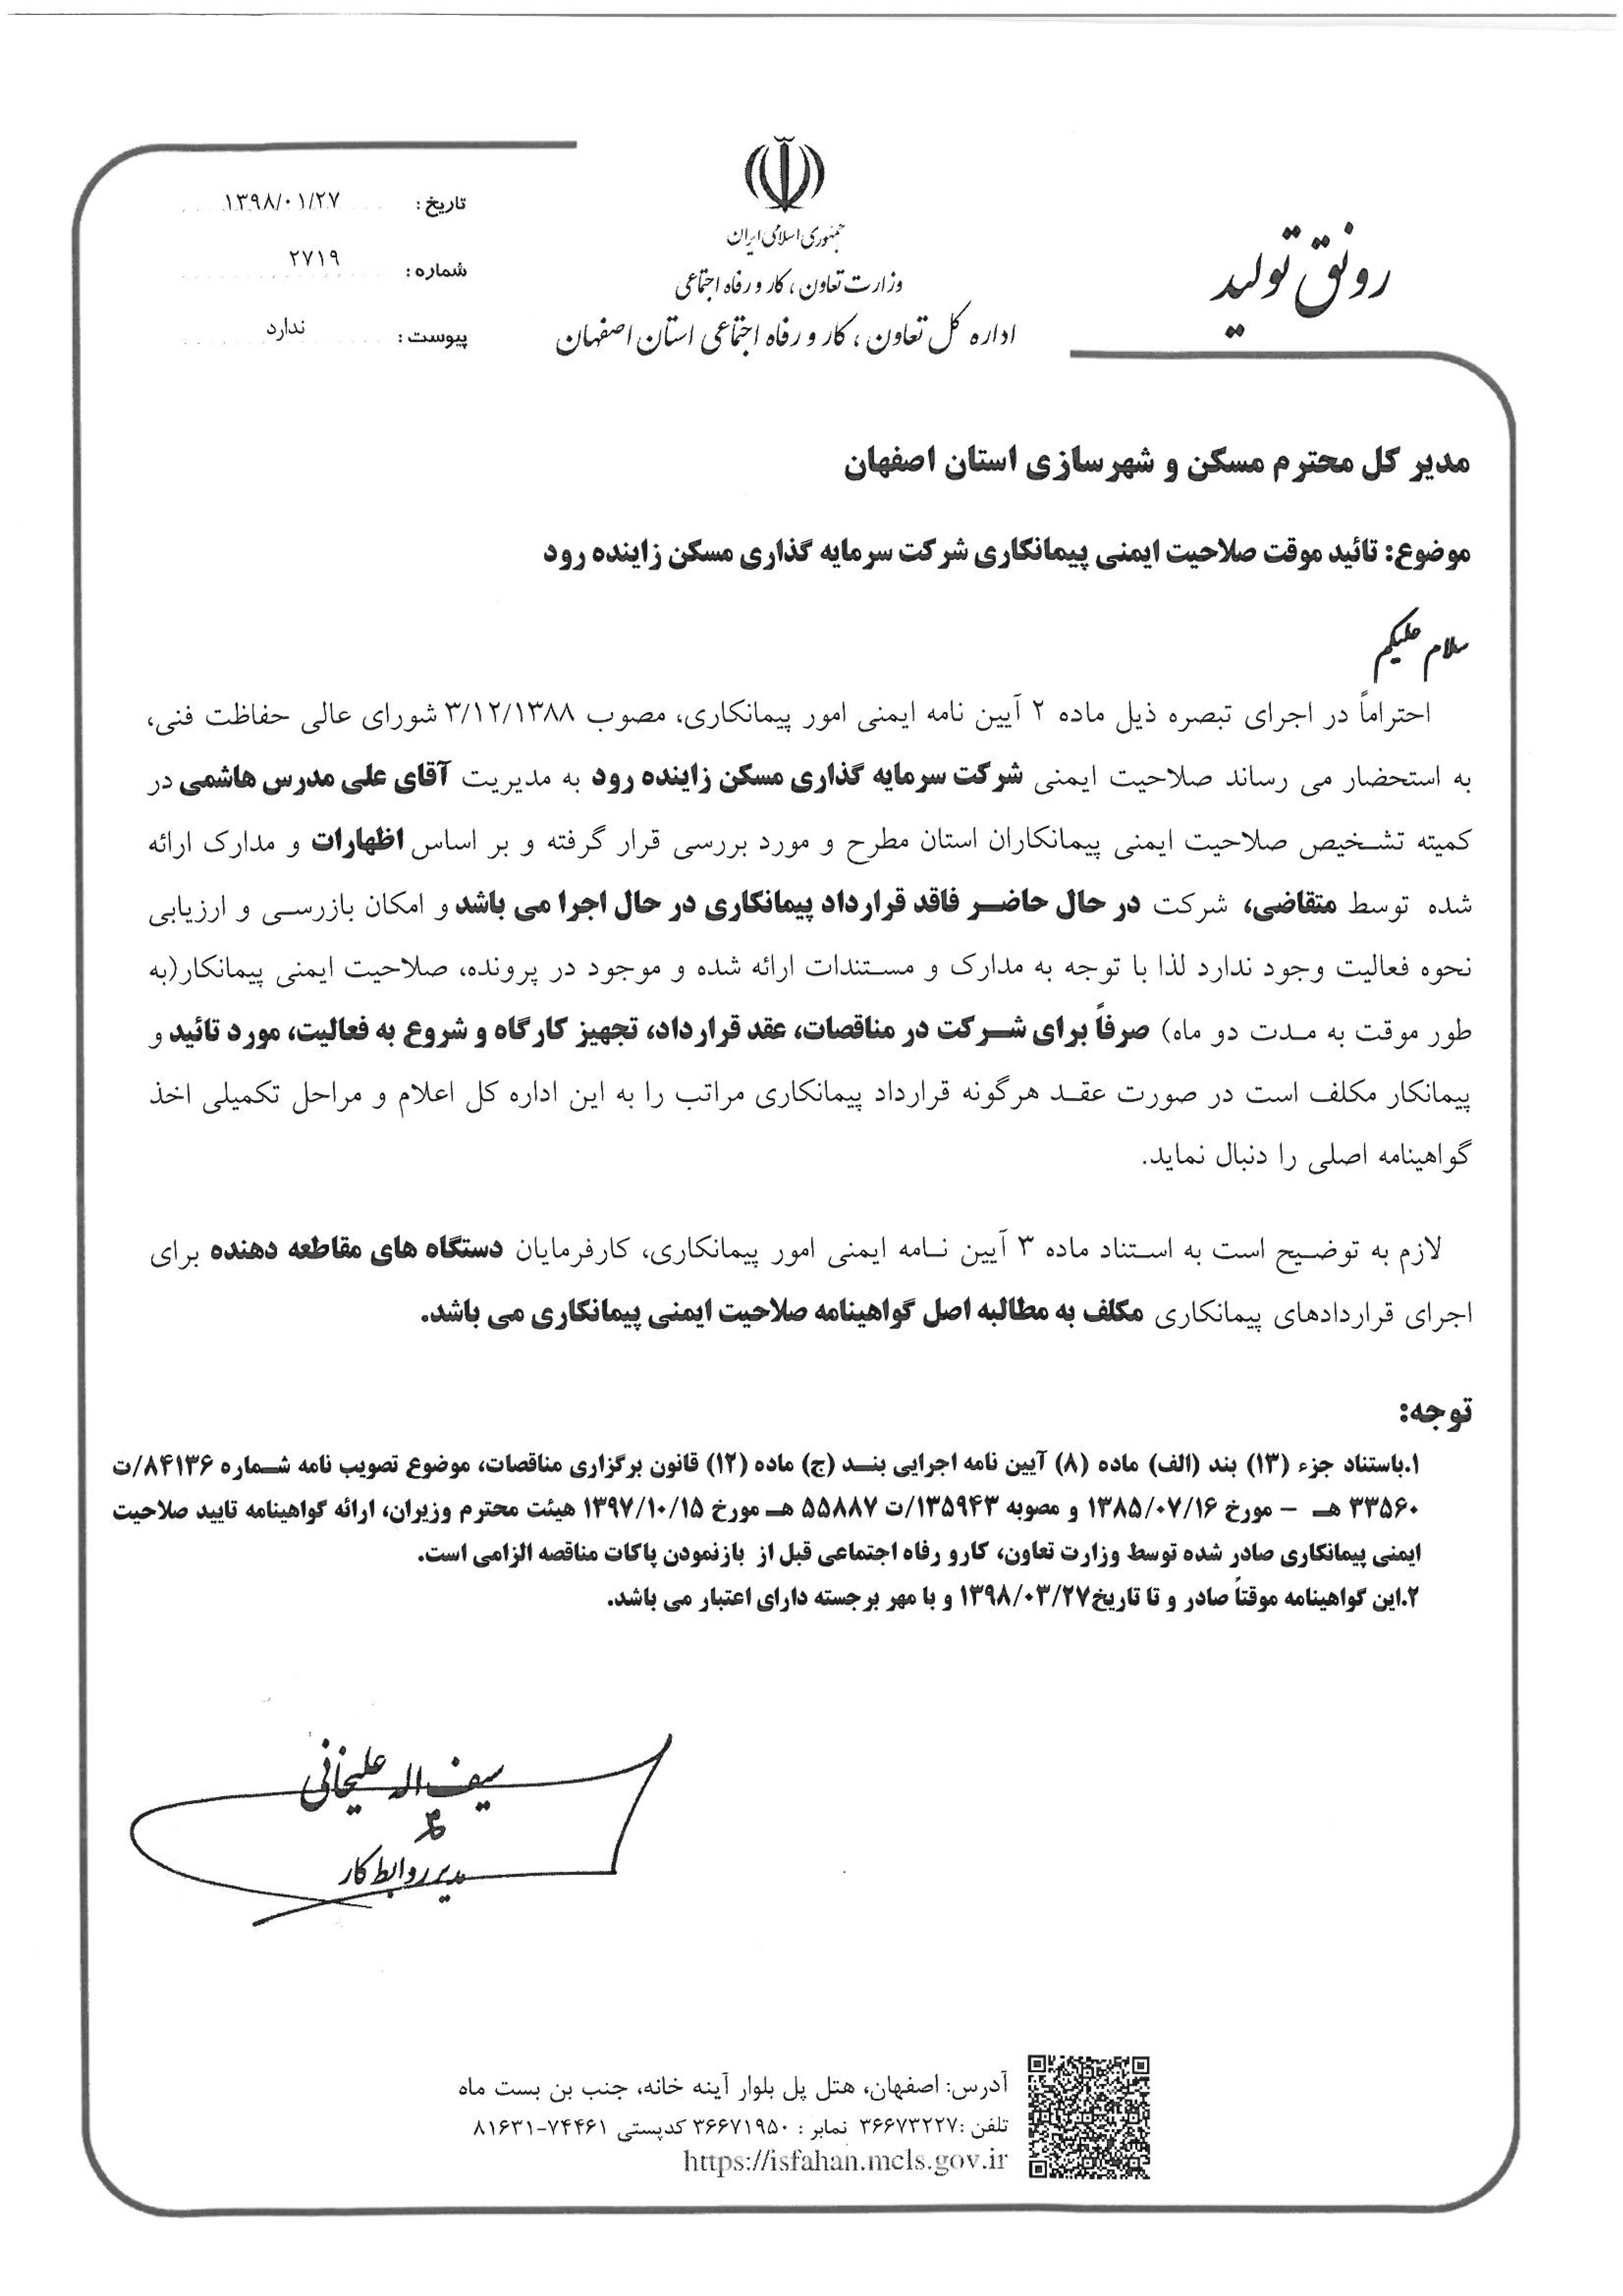 جمهوری اسلامی ایران
وزارت تعاون، کار و رفاه اجتماعی
اداره کل تعاون، کار و رفاه اجتماعی استان اصفهان
رونق تولید
تاریخ: ۱۳۹۸/۰۱/۲۷
شماره: ۲۷۱۹
پیوست: ندارد
مدیر کل محترم مسکن و شهرسازی استان اصفهان
موضوع: تائید موقت صلاحیت ایمنی پیمانکاری شرکت سرمایه گذاری مسکن زاینده رود
سلام علیکم
احتراماً در اجرای تبصره ذیل ماده ۲ آیین نامه ایمنی امور پیمانکاری، مصوب ۳/۱۲/۱۳۸۸ شورای عالی حفاظت فنی،
به استحضار می رساند صلاحیت ایمنی شرکت سرمایه گذاری مسکن زاینده رود به مدیریت آقای علی مدرس هاشمی در
کمیته تشخیص صلاحیت ایمنی پیمانکاران استان مطرح و مورد بررسی قرار گرفته و بر اساس اظهارات و مدارک ارائه
شده توسط متقاضی، شرکت در حال حاضر فاقد قرارداد پیمانکاری در حال اجرا می باشد و امکان بازرسی و ارزیابی
نحوه فعالیت وجود ندارد لذا با توجه به مدارک و مستندات ارائه شده و موجود در پرونده، صلاحیت ایمنی پیمانکار(به
طور موقت به مدت دو ماه) صرفاً برای شرکت در مناقصات، عقد قرارداد، تجهیز کارگاه و شروع به فعالیت، مورد تائید و
پیمانکار مکلف است در صورت عقد هرگونه قرارداد پیمانکاری مراتب را به این اداره کل اعلام و مراحل تکمیلی اخذ
گواهینامه اصلی را دنبال نماید.
لازم به توضیح است به استناد ماده ۳ آیین نامه ایمنی امور پیمانکاری، کارفرمایان دستگاه های مقاطعه دهنده برای
اجرای قراردادهای پیمانکاری مکلف به مطالبه اصل گواهینامه صلاحیت ایمنی پیمانکاری می باشد.
توجه:
۱.باستناد جزء (۱۳) بند (الف) ماده (۸) آیین نامه اجرایی بند (ج) ماده (۱۲) قانون برگزاری مناقصات، موضوع تصویب نامه شماره ۸۴۱۳۶/ت
۳۳۵۶۰ هـ - مورخ ۱۳۸۵/۰۷/۱۶ و مصوبه ۱۳۵۹۴۳/ت ۵۵۸۸۷ هـ مورخ ۱۳۹۷/۱۰/۱۵ هیئت محترم وزیران، ارائه گواهینامه تایید صلاحیت
ایمنی پیمانکاری صادر شده توسط وزارت تعاون، کارو رفاه اجتماعی قبل از بازنمودن پاکات مناقصه الزامی است.
۲.این گواهینامه موقتاً صادر و تا تاریخ۱۳۹۸/۰۳/۲۷ و با مهر برجسته دارای اعتبار می باشد.
سیف اله علیخانی
مدیر روابط کار
آدرس: اصفهان، هتل پل بلوار آینه خانه، جنب بن بست ماه
تلفن :۳۶۶۷۳۲۲۷ نمابر : ۳۶۶۷۱۹۵۰ کدپستی ۷۴۴۶۱-۸۱۶۳۱
https://isfahan.mcls.gov.ir